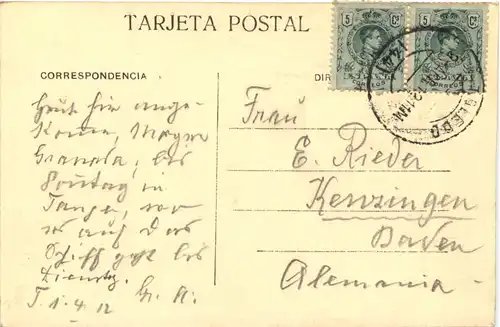 TARJETA POSTAL
CORRESPONDENCIA
DIR
5 Cs 5 Cs
CORREOS CORREOS
Heute hier ange-
komen, Morgen
Granada, bis
Sontag in
Tanger, wo
es auf das
Schiff geht bis
Dienstg.
T. 1.4.12
Frau
E. Rieder
Kenzingen
Baden
Alemania